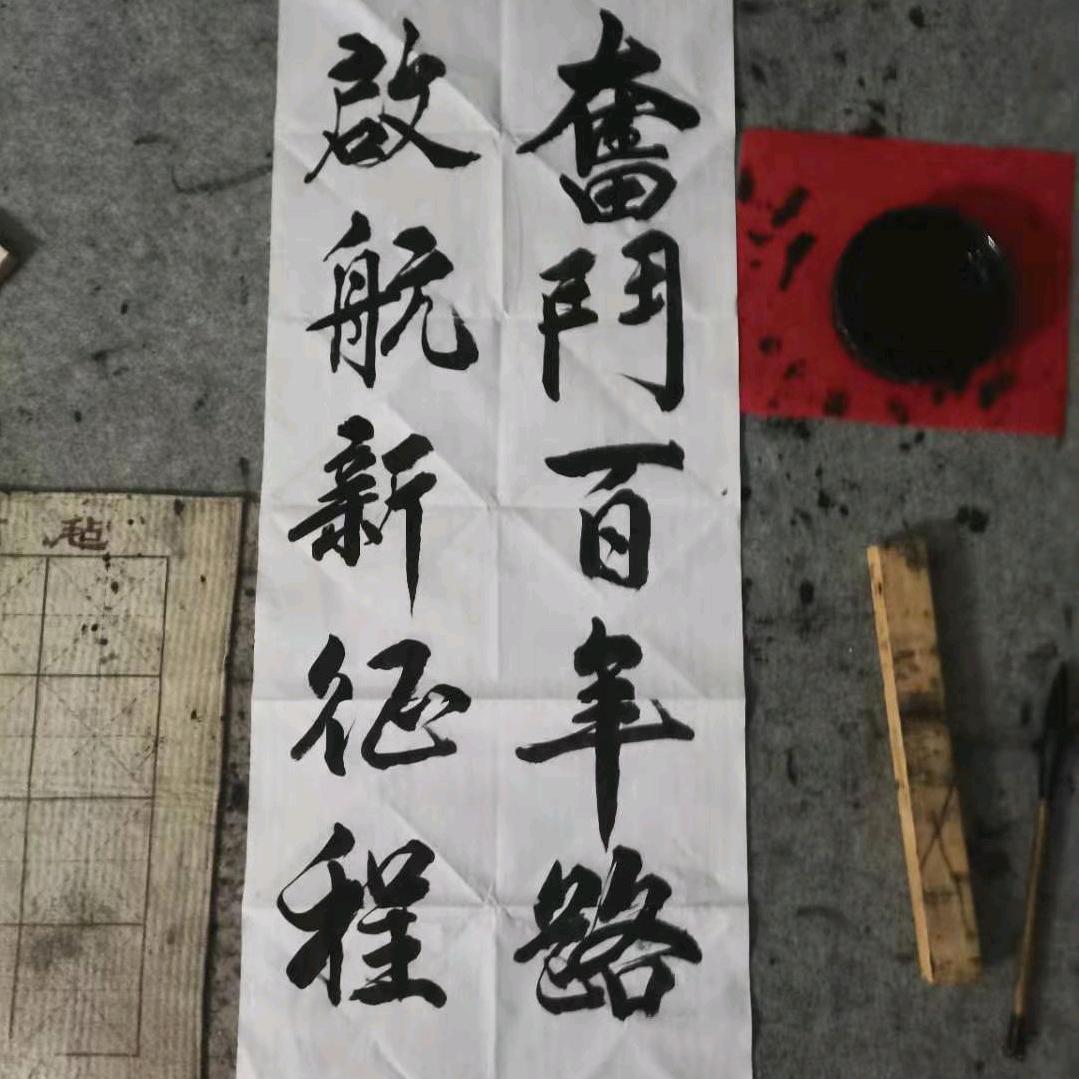 奮鬥百年路
啟航新征程
毡